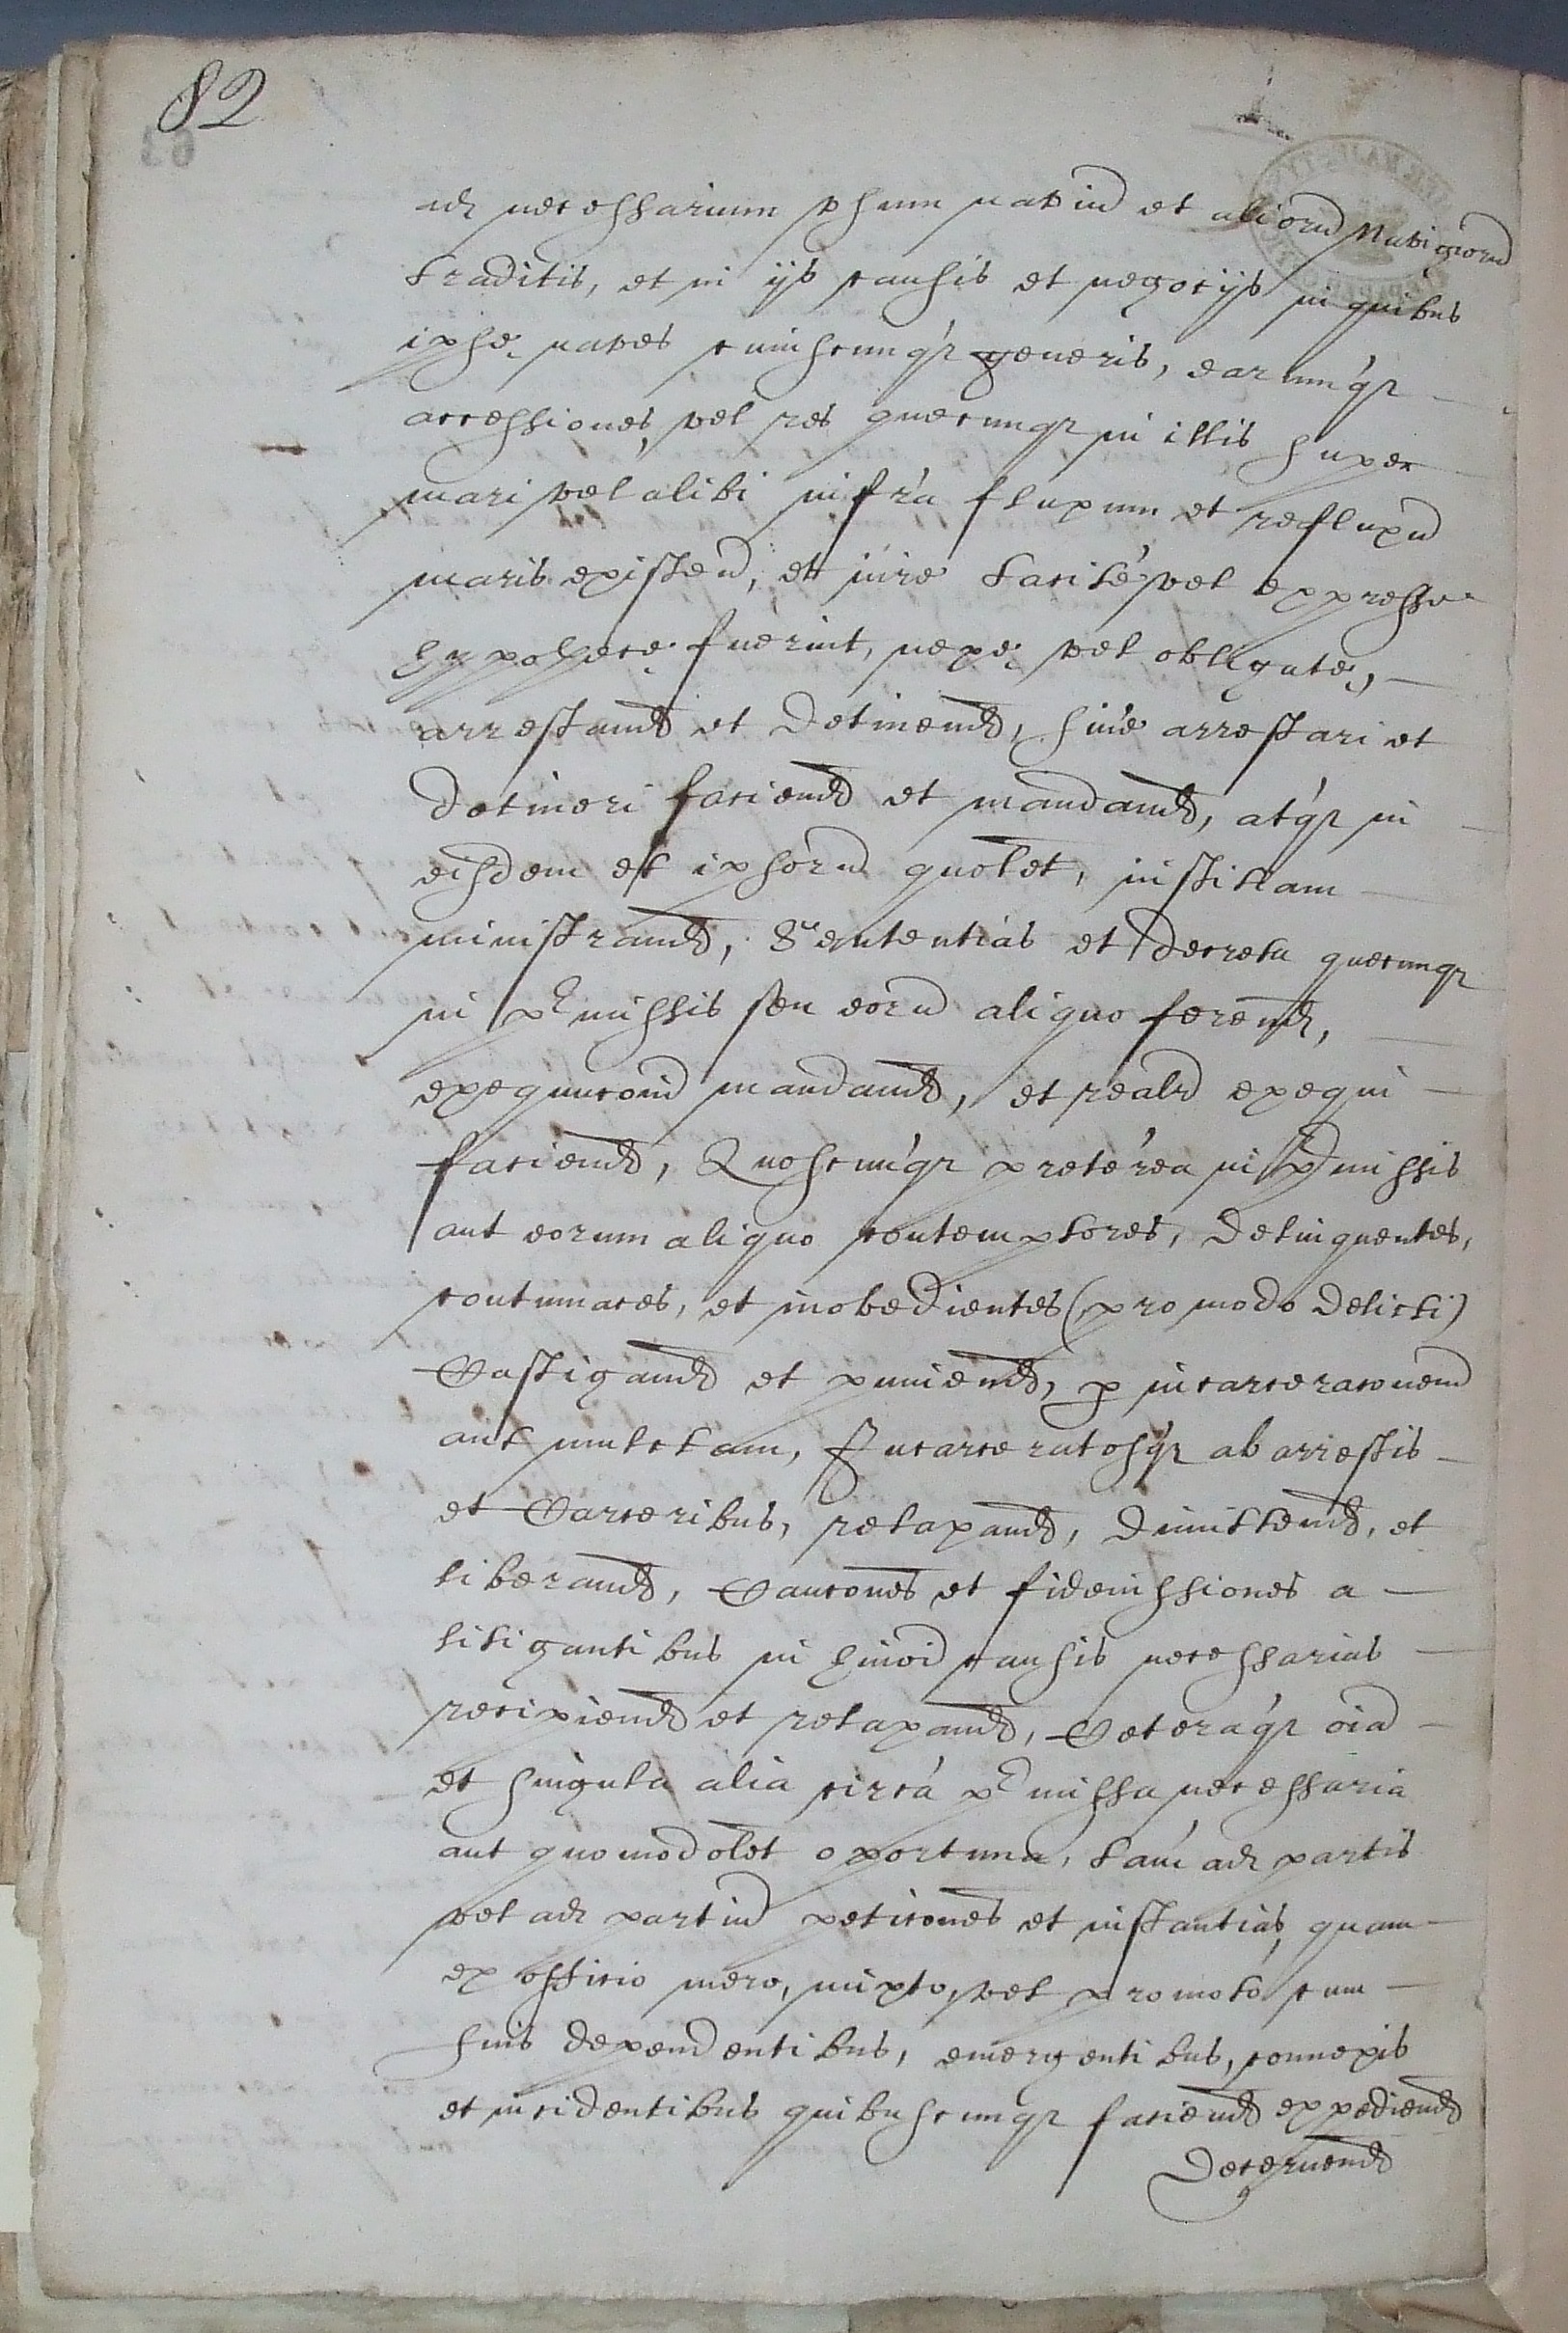 82
63
ad necessarium usum navium et aliorum Navigiorum
traditis, et in ijs causis et negocijs in quibus
ipse naves cuiuscunq generis, earumq
accessiones, vel res quecunq in illis super
mari vel alibi infra fluxum et refluxum
maris existen, et iure tacite vel expresse
hypothece fuerint, nexe vel obligate,
arrestand et detinend, sive arrestari et
detineri faciend et mandand, atq in
eisdem et ipsoru quolet, iustitiam
ministrand, Sententias et decreta quecunq
in pmissis seu eoru aliquo ferend,
exequuconi mandand, et realr exequi
faciend, Quoscunq preterea in pmissis
aut eorum aliquo contemptores, delinquentes,
contumaces, et inobedientes (pro modo delicti)
Castigand et puniend, p incarceraconem
aut mulctam, Incarceratosq ab arrestis
et Carceribus, relaxand, dimittend, et
liberand, Caucones et fideiussiones a
litigantibus in hmoi causis necessarias
recipiend et relaxand, Ceteraq oia
et singula alia circa pmissa necessaria
aut quomodolet oportuna, tam ad partis
vel ad partiu peticones et instantias, quam
ex officio mero, mixto, vel promoto cum
suis dependentibus, emergentibus, connexis
et incidentibus quibuscunq faciend expediend
decernend